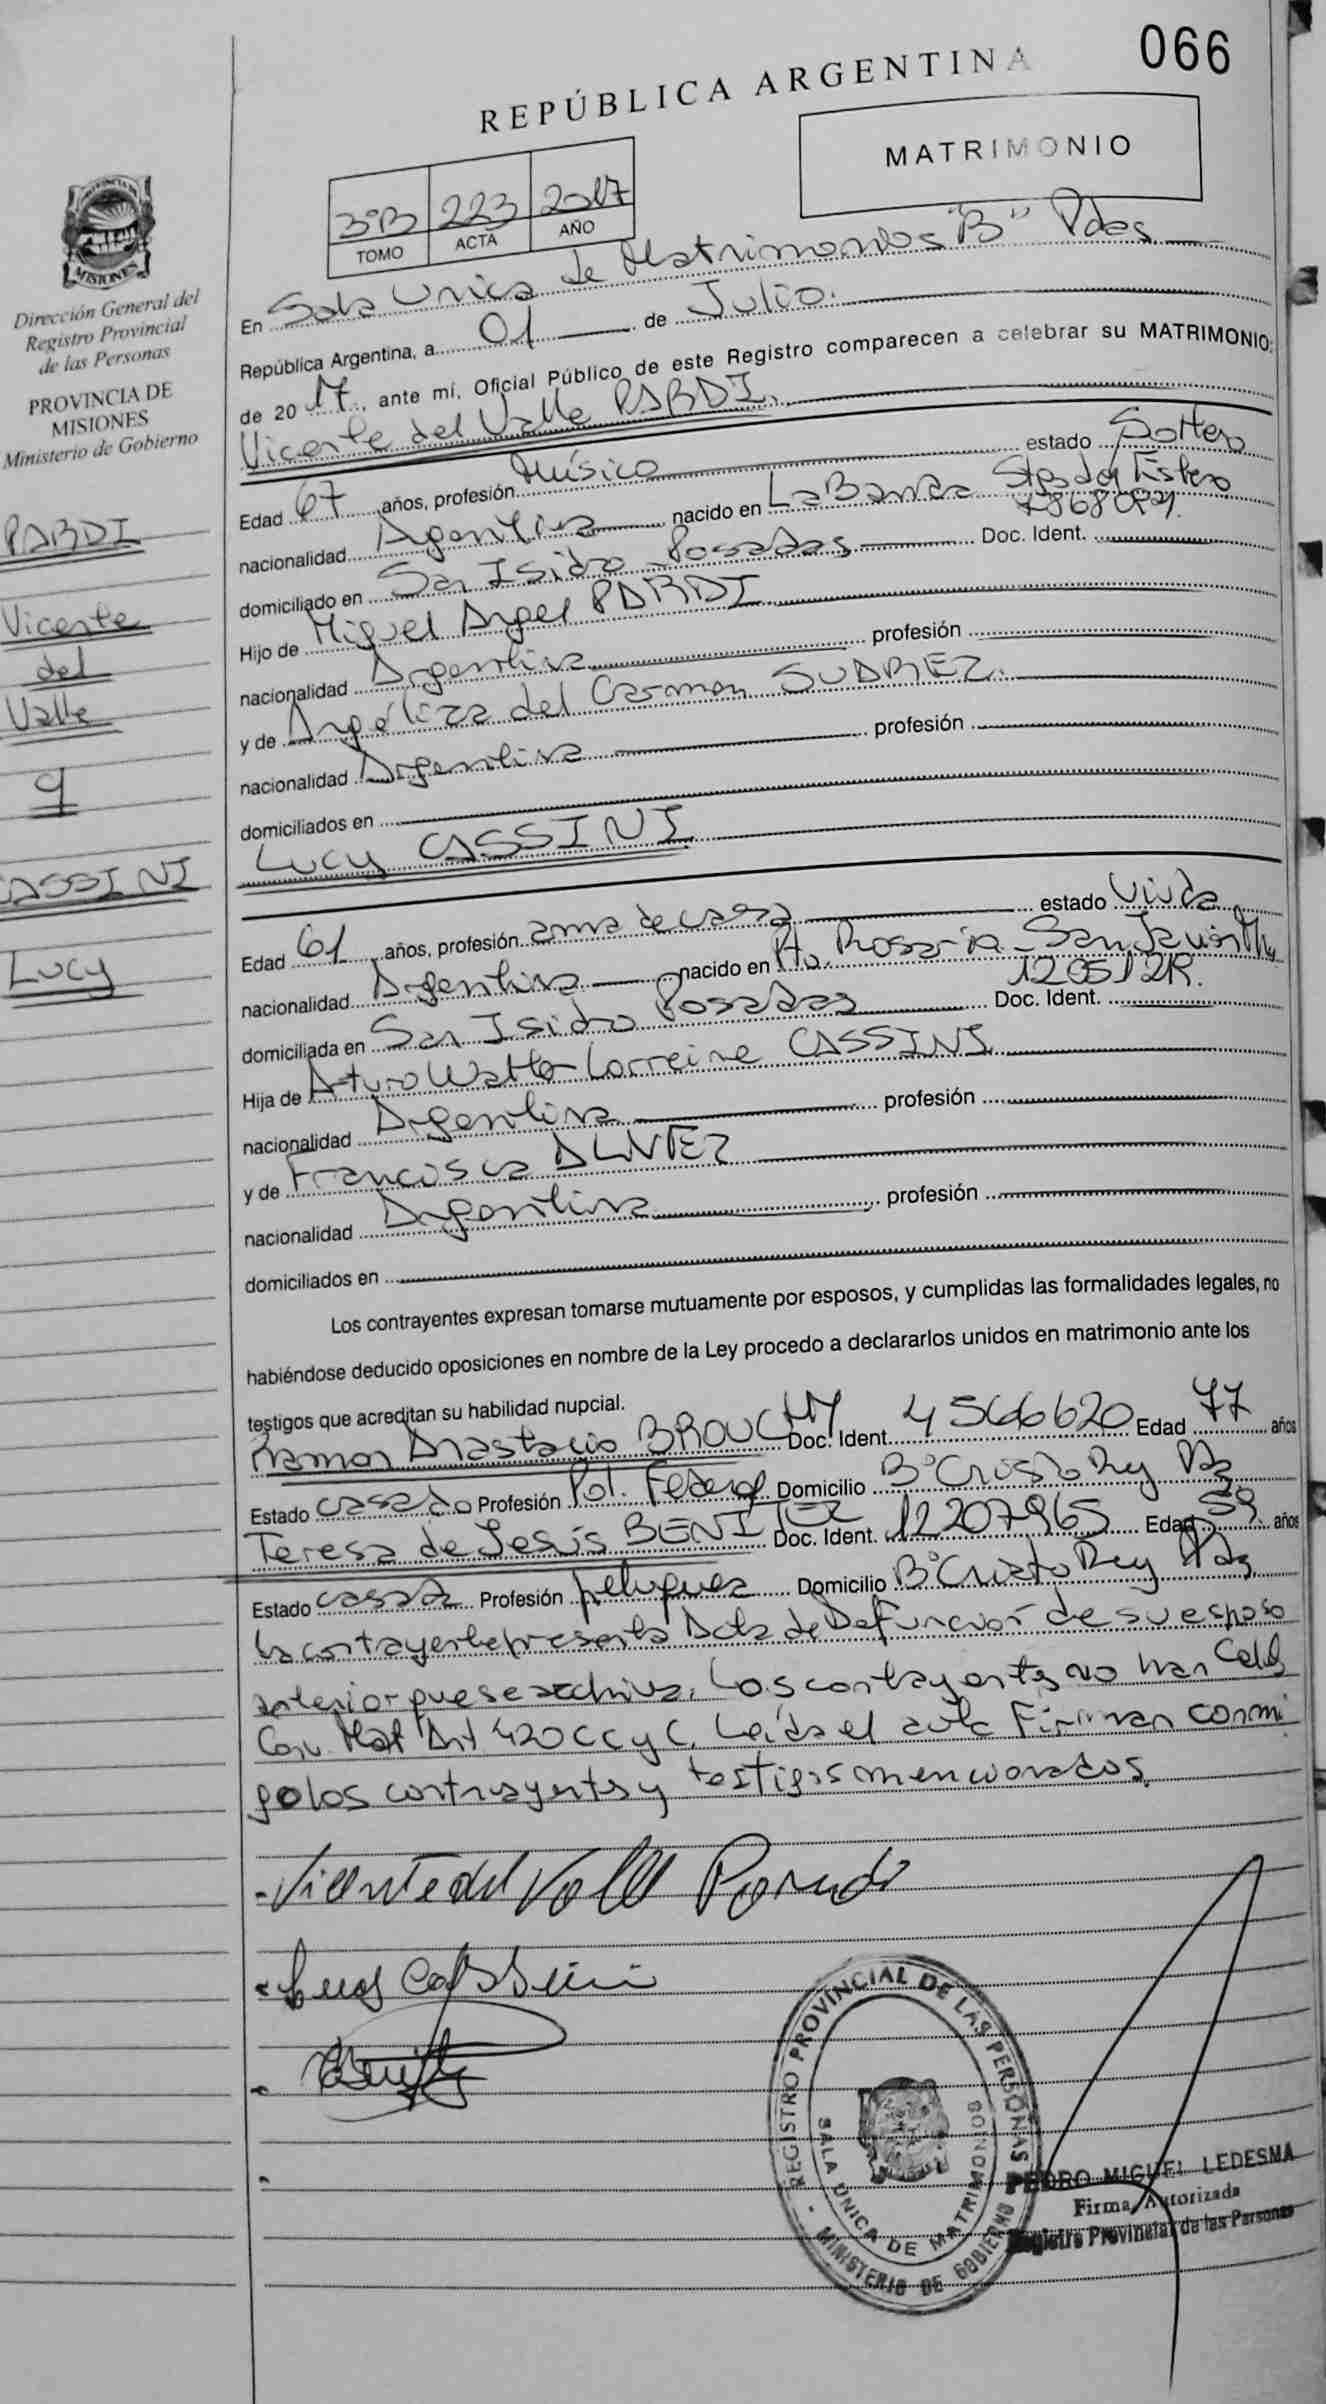 066
REPÚBLICA ARGENTINA
MATRIMONIO
3ºB 223 2017
TOMO ACTA AÑO
PROVINCIA DE MISIONES
Dirección General del
Registro Provincial
de las Personas
PROVINCIA DE
MISIONES
Ministerio de Gobierno
PARDI
Vicente
del
Valle
y
CASSINI
Lucy
En Sala Unica de Matrimonios "B" Pdas
República Argentina, a 01 de Julio.
de 20 17, ante mí, Oficial Público de este Registro comparecen a celebrar su MATRIMONIO:
Vicente del Valle PARDI,
Edad 67 años, profesión Músico estado Soltero
nacionalidad Argentina nacido en La Banda Stgo del Estero
domiciliado en San Isidro Posadas Doc. Ident.
Hijo de Miguel Angel PARDI
nacionalidad Argentina profesión
y de Angélica del Carmen SUAREZ.
nacionalidad Argentina profesión
domiciliados en
Lucy CASSINI
Edad 61 años, profesión ama de casa estado Viuda
nacionalidad Argentina nacido en Pto. Rosario - San Javier
domiciliada en San Isidro Posadas Doc. Ident.
Hija de Arturo Walter Lorreine CASSINI
nacionalidad Argentina profesión
y de Francisca
nacionalidad Argentina profesión
domiciliados en
Los contrayentes expresan tomarse mutuamente por esposos, y cumplidas las formalidades legales, no
habiéndose deducido oposiciones en nombre de la Ley procedo a declararlos unidos en matrimonio ante los
testigos que acreditan su habilidad nupcial.
Ramon Anastacio Doc. Ident. 4566620 Edad 77 años
Estado casado Profesión Pol. Federal Domicilio Bº Cristo Rey Pdas
Teresa de Jesús BENITEZ Doc. Ident. 12207965 Edad 59 años
Estado casada Profesión peluquera Domicilio Bº Cristo Rey Pdas
La contrayente presenta Acta de Defuncion de su esposo
anterior que se archiva. Los contrayentes no han Celeb
Conv. Mat Art 420 CC y C. Leída el acta Firman conmi
go los contrayentes y testigos mencionados.
Vicente del Valle
Lucy Cassini
REGISTRO PROVINCIAL DE LAS PERSONAS
SALA UNICA DE MATRIMONIOS
MINISTERIO DE GOBIERNO
PEDRO MIGUEL LEDESMA
Firma Autorizada
Registro Provincial de las Personas